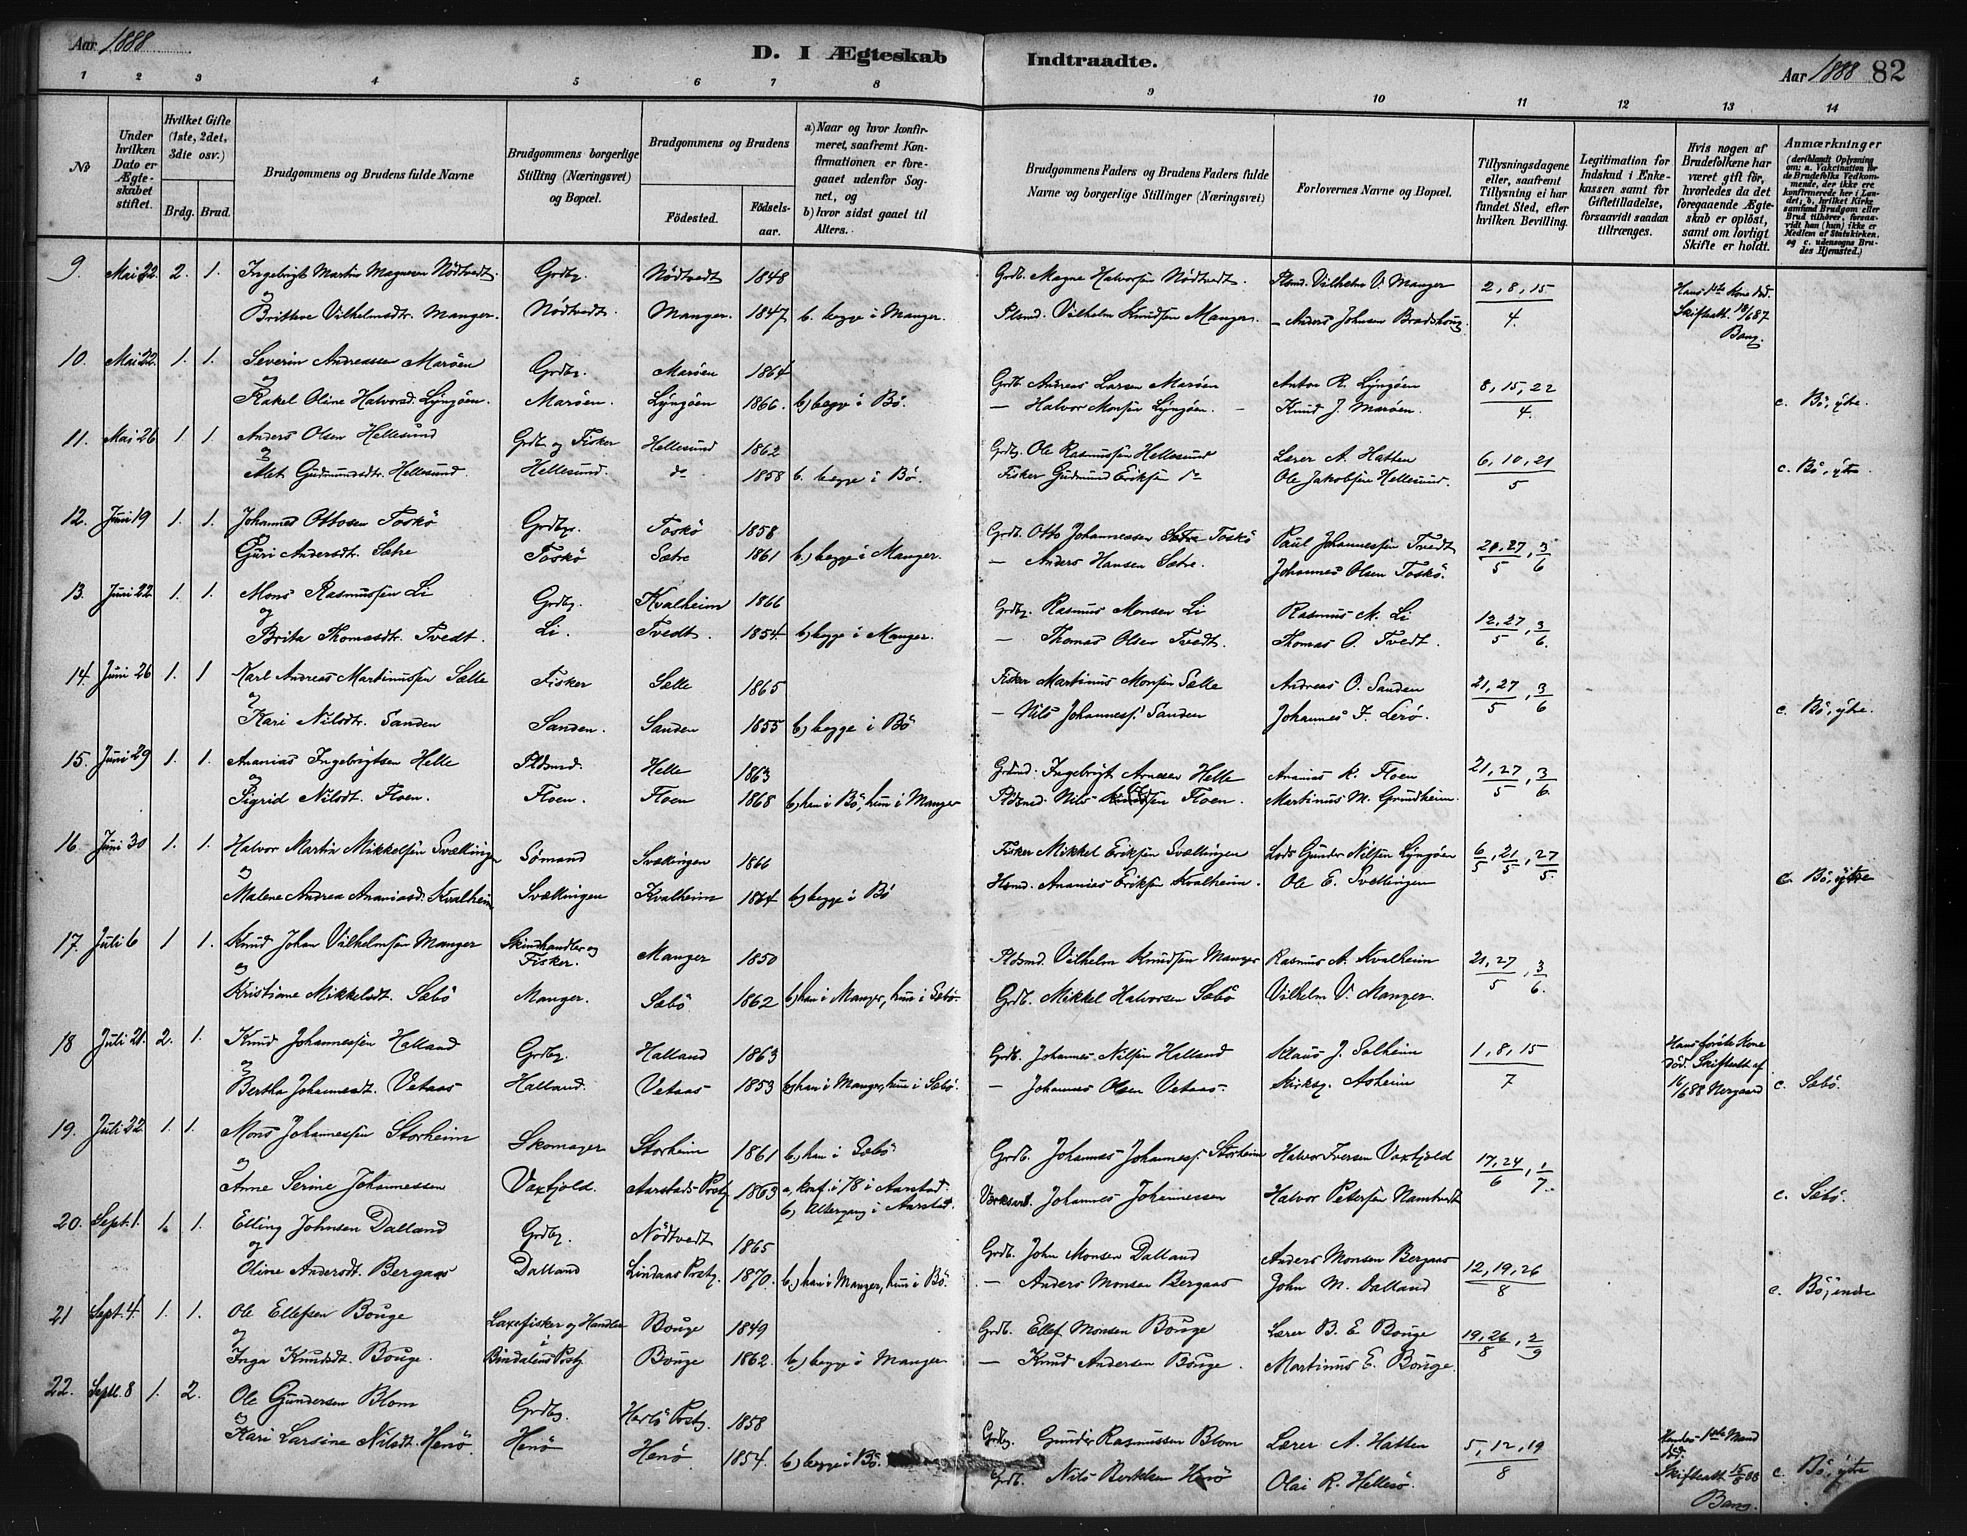 Aar 1888
D. I Ægteskab Indtraadte.
Aar 1888 82
1 2 3 4 5 6 7 8 9 10 11 12 13 14
No
Under hvilken Dato er Ægteskabet stiftet.
Hvilket Gifte (1ste, 2det, 3die osv.)
Brdg. Brud.
Brudgommens og Brudens fulde Navne
Brudgommens borgerlige Stilling (Næringsvei) og Bopæl.
Brudgommens og Brudens
Födested. Födselsaar.
a) Naar og hvor konfirmeret, saafremt Konfirmationen er foregaaet udenfor Sognet, og
b) hvor sidst gaaet til Alters.
Brudgommens Faders og Brudens Faders fulde Navne og borgerlige Stillinger (Næringsvei)
Forlovernes Navne og Bopæl.
Tillysningsdagene eller, saafremt Tillysning ei har fundet Sted, efter hvilken Bevilling.
Legitimation for Indskud i Enkekassen samt for Giftetilladelse, forsaavidt saadan tiltrænges.
Hvis nogen af Brudefolkene har været gift för, hvorledes da det foregaaende Ægteskab er oplöst, samt om lovligt Skifte er holdt.
Anmærkninger
(deriblandt Oplysning om: a. Vakcination for de Brudefolks Vedkommende, der ikke ere konfirmerede her i Landet; b. hvilket Kirkesamfund Brudgom eller Brud tilhörer, forsaavidt han (hun) ikke er Medlem af Statskirken, og c. udensogns Brudes Hjemsted.)
9 Mai 22. 2. 1. Ingebrigt Martin Magnesen Nödtvedt. Grdbg. Nödtvedt 1848 Grdb. Magne Halvorsen Nödtvedt. Plsmd. Vilhelm V. Manger 2, 8, 15 Hans 1ste Kone död.
og Brithve Vilhelmsdtr. Manger. Nödtvedt. Manger. 1847 b. begge i Manger. Plsmd. Vilhelm Knudsen Manger. – Anders Johnsen 4. Skifteatt. Bang.
10. Mai 22. 1. 1. Severin Andreassen Maröen Grdbg. Maröen 1864 Grdb. Andreas Larsen Maröen Anton R. Lyngöen 8, 15, 22
og Rakel Oline Halvorsd. Lyngöen. Maröen. Lyngöen 1866. b) begge i Bö. – Halvor Monsen Lyngöen. – Knud J. Maröen. 4. c. Bö, ytre.
11. Mai 26 1. 1. Anders Olsen Hellesund Grdb. og Fisker Hellesund 1862 Grdbg. Ole Rasmussen Hellesund Lærer A. Hatten 6, 10, 21
og Met Gudmundsdtr. Hellesund. Hellesund. do 1858 b. begge i Bö. Fisker Gudmund Eriksen do Ole Jakobsen Hellesund. 5 c. Bö, ytre
12. Juni 19 1. 1. Johannes Ottosen Toskö Grdbg. Toskö 1858 Grdb. Otto Johannessen Toskö Paul Johannessen Tvedt 21, 27, 3
Guri Andersdt. Sætre Toskö Sætre 1861 b) begge i Manger. – Anders Hansen Sætre. Johannes Olsen Toskö. 5 6
13. Juni 22 1. 1. Mons Rasmussen Li Grdbg. Kvalheim 1866 Grdbg. Rasmus Monsen Li Rasmus M. Li 12, 27, 3
og Brita Thomasdtr. Tvedt. Li. Tvedt. 1854 b) begge i Manger. – Thomas Olsen Tvedt. Thomas O. Tvedt. 5 6.
14. Juni 26 1. 1 Karl Andreas Martinussen Sælle Fisker Sælle 1865 Fisker Martinus Monsen Sælle Andreas O. Sanden 21, 27, 3
og Kari Nilsdtr. Sanden Sanden. Sanden 1855 b) begge i Bö – Nils Johanness. Sanden Johannes F. Lerö. 5 6 c. Bö, ytre.
15. Juni 29 1. 1. Ananias Ingebrigtsen Helle Pldsmd. Helle 1863 Ingebrigt Arnesen Helle Ananias K. Floen 21, 27, 3
og Sigrid Nilsdt. Floen. Floen. Floen 1868 b) han i Bö, hun i Manger Pldsmd. Nils Floen. Martinus M. Grudheim. 5 6.
16. Juni 30 1. 1. Halvor Martin Mikkelsen Svællingen Sömand Svællingen 1866 Fisker Mikkel Eriksen Svællingen Lods Gunder Nilsen Lyngöen 6/5, 21/5, 27/5.
og Malene Andrea Ananiasd. Kvalheim Svællingen Kvalheim 1864 b) begge i Bö Hsmd. Ananias Eriksen Kvalheim. Ole E. Svellingen c. Bö, ytre
17. Juli 6 1 1. Knud Johan Vilhelmsen Manger Skindhandler og Fisker. Manger 1850 Pldsmd. Vilhelm Knudsen Manger Rasmus A. Kvalheim 21, 27, 3
og Kristiane Mikkelsdt. Sæbö Manger. Sæbö 1862 b) han i Manger, hun i Sæbö. Grdb. Mikkel Halvorsen Sæbö Vilhelm V. Manger. 5 6.
18 Juli 21. 2. 1. Knud Johannessen Halland Grdbg. Halland 1863 Grdb. Johannes Nilsen Halland Klaus J. Solheim 1, 8, 15 Hans förste Kone död. Skifteatt af
og Bertha Johannesdt. Vetaas Halland. Vetaas 1853 b) han i Manger, hun i Sæbö. – Johannes Olsen Vetaas. Kirksg. Asheim 7 Nergaard c. Sæbö.
19. Juli 22 1. 1. Mons Johannessen Storheim Skomager Storheim 1861 b) han i Sæbö Grdb. Johannes Johanness. Storheim Halvor Iversen Vaxtjold 17, 24, 1
og Anne Serine Johannessen Vaxtjold. Aarstads Pstg. 1863 a, konf. i 78 i Aarstad. b) Altergang i Aarstad. Værksarb. Johannes Johannessen Halvor Petersen Namtvedt 6 7. c. Sæbö.
20. Sept. 1. 1. 1. Elling Johnsen Dalland Grdbg. Nödtvedt 1865 Grdb. John Monsen Dalland Anders Monsen Bergaas 12, 19, 26
og Oline Andersdt. Bergaas Dalland Lindaas Pstg. 1870. b) han i Manger, hun i Bö. – Anders Monsen Bergaas John M. Dalland 8 c. Bö, indre
21 Sept. 4. 1. 1. Ole Ellefsen Bouge Laxefisker og Handler i Bouge 1849 Grdb. Ellef Monsen Bouge Lærer B. E. Bouge 19, 26, 2
og Inga Knudsdt. Bouge. Bindalens Pstg. Bouge 1862. b) begge i Manger – Knud Andersen Bouge. Martinus E. Bouge. 8 9
22. Sept. 8 1. 2. Ole Gundersen Blom Grdbg. Herlö Pstg. 1858 Grdbg. Gunder Rasmussen Blom Lærer A. Hatten 5, 12, 19 Hendes 1ste Mand död,
og Kari Larsine Nilsdt. Henö. Henö Henö 1854. b) begge i Bö. Grdb. Nils Henö Olai R. Hellesö. 8 Skifteatt. Bang. c. Bö, ytre